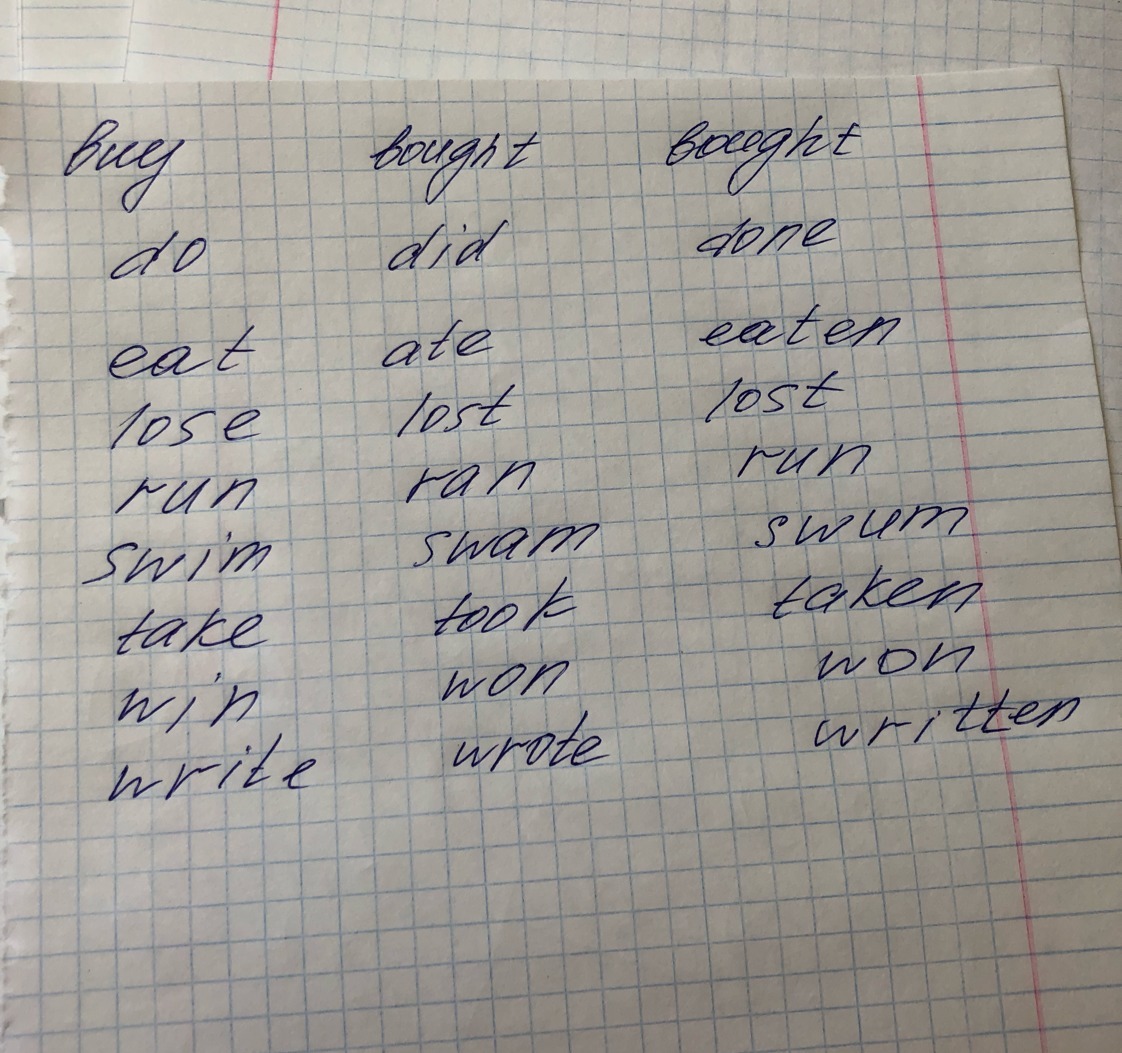 buy bought bought
do did done
eat ate eaten
lose lost lost
run ran run
swim swam swum
take took taken
win won won
write wrote written